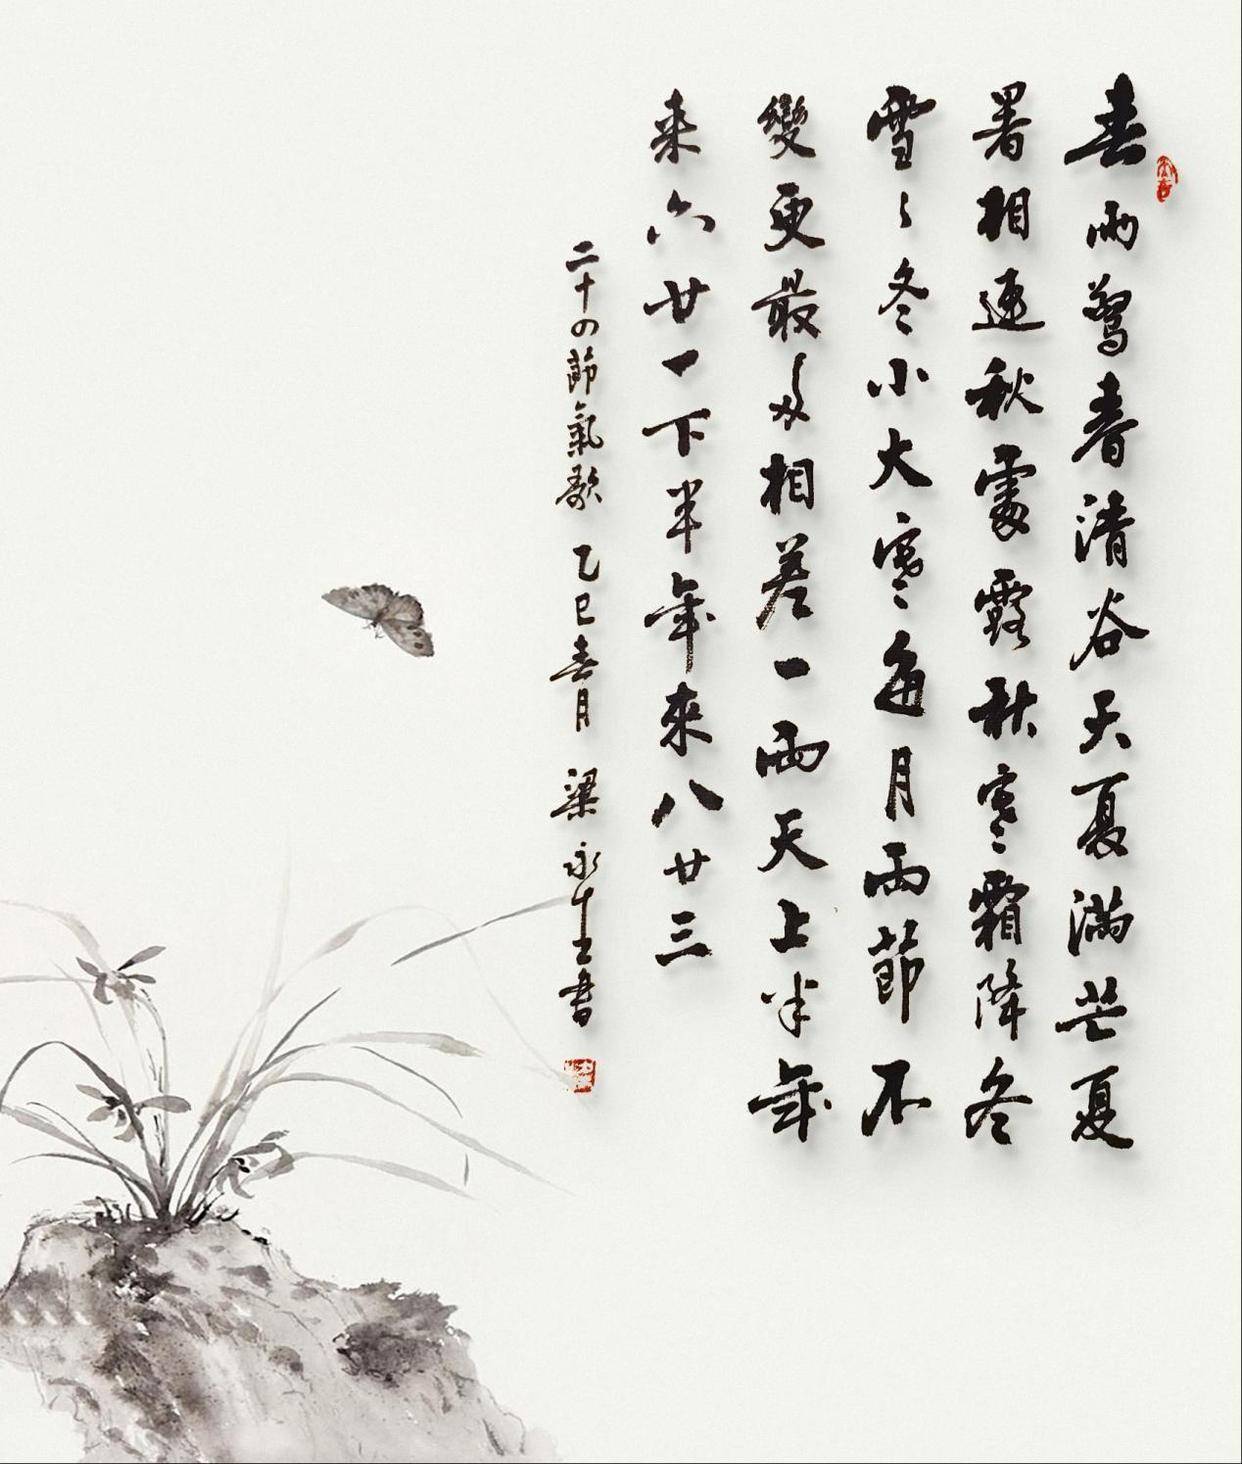 春雨驚春清谷天夏滿芒夏
暑相連秋處露秋寒霜降冬
雪〻冬小大寒每月兩節不
變更最多相差一兩天上半年
来六廿一下半年來八廿三
二十四節氣歌 乙巳春月 梁永生書